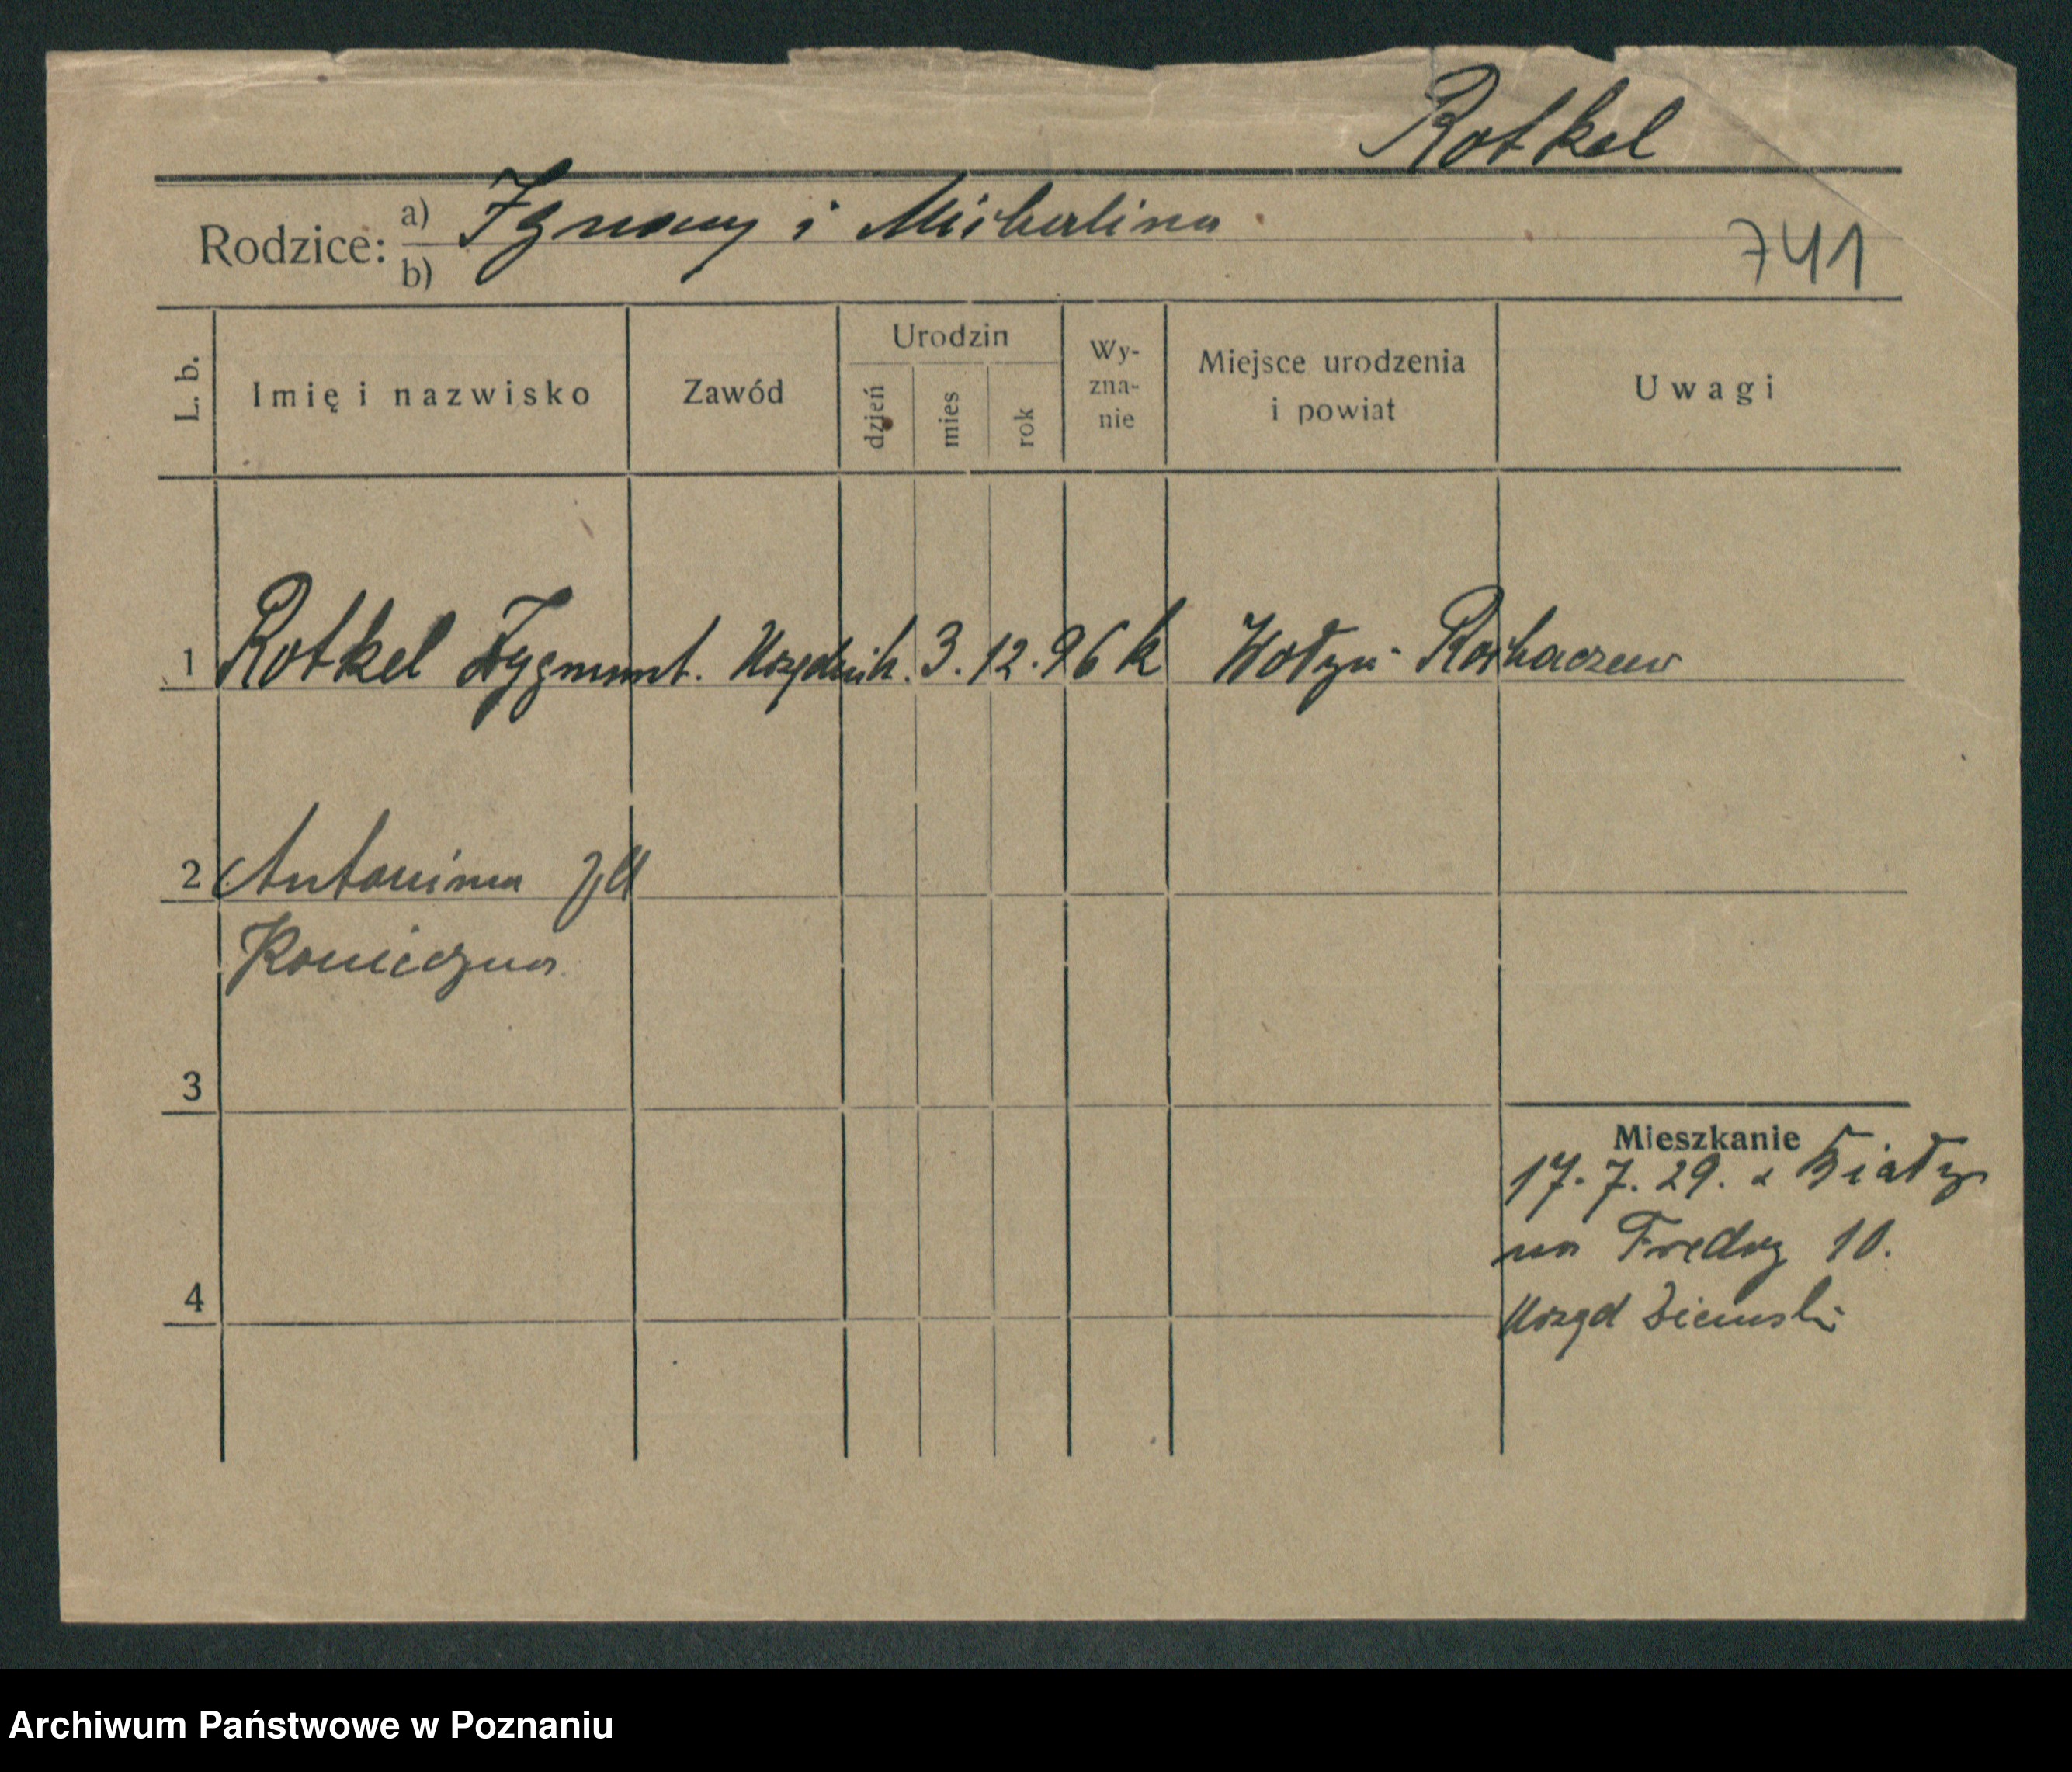 Rotkel
Rodzice: a) Ignacy i Michalina
b)
741
L. b. Imię i nazwisko Zawód Urodzin dzień mies rok Wy-zna-nie Miejsce urodzenia i powiat Uwagi
1 Rotkel Zygmunt. Urzędnik. 3. 12. 96 k Wołyń - Rochaczew
2 Antonina
Konieczna
3
Mieszkanie
17. 7. 29. z Biały
na Fredry 10.
4
Urząd Ziemski
Archiwum Państwowe w Poznaniu